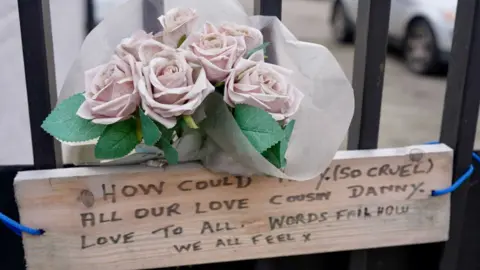 HOW COULD (SO CRUEL)
ALL OUR LOVE COUSIN DANNY.
LOVE TO ALL. WORDS FAIL HOW
WE ALL FEEL X